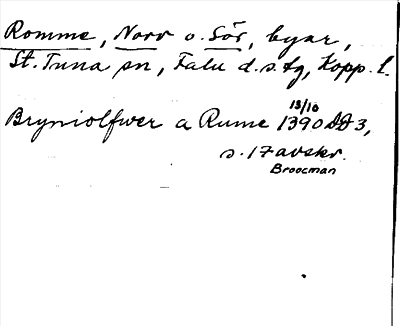 Romme, Norr o. Sör, byar,
St. Tuna sn, Falu d.s. fg, Kopp. l.
13/10
Bryniolfwer a Rume 1390 DD 3,
s. 17 avskr.
Broocman